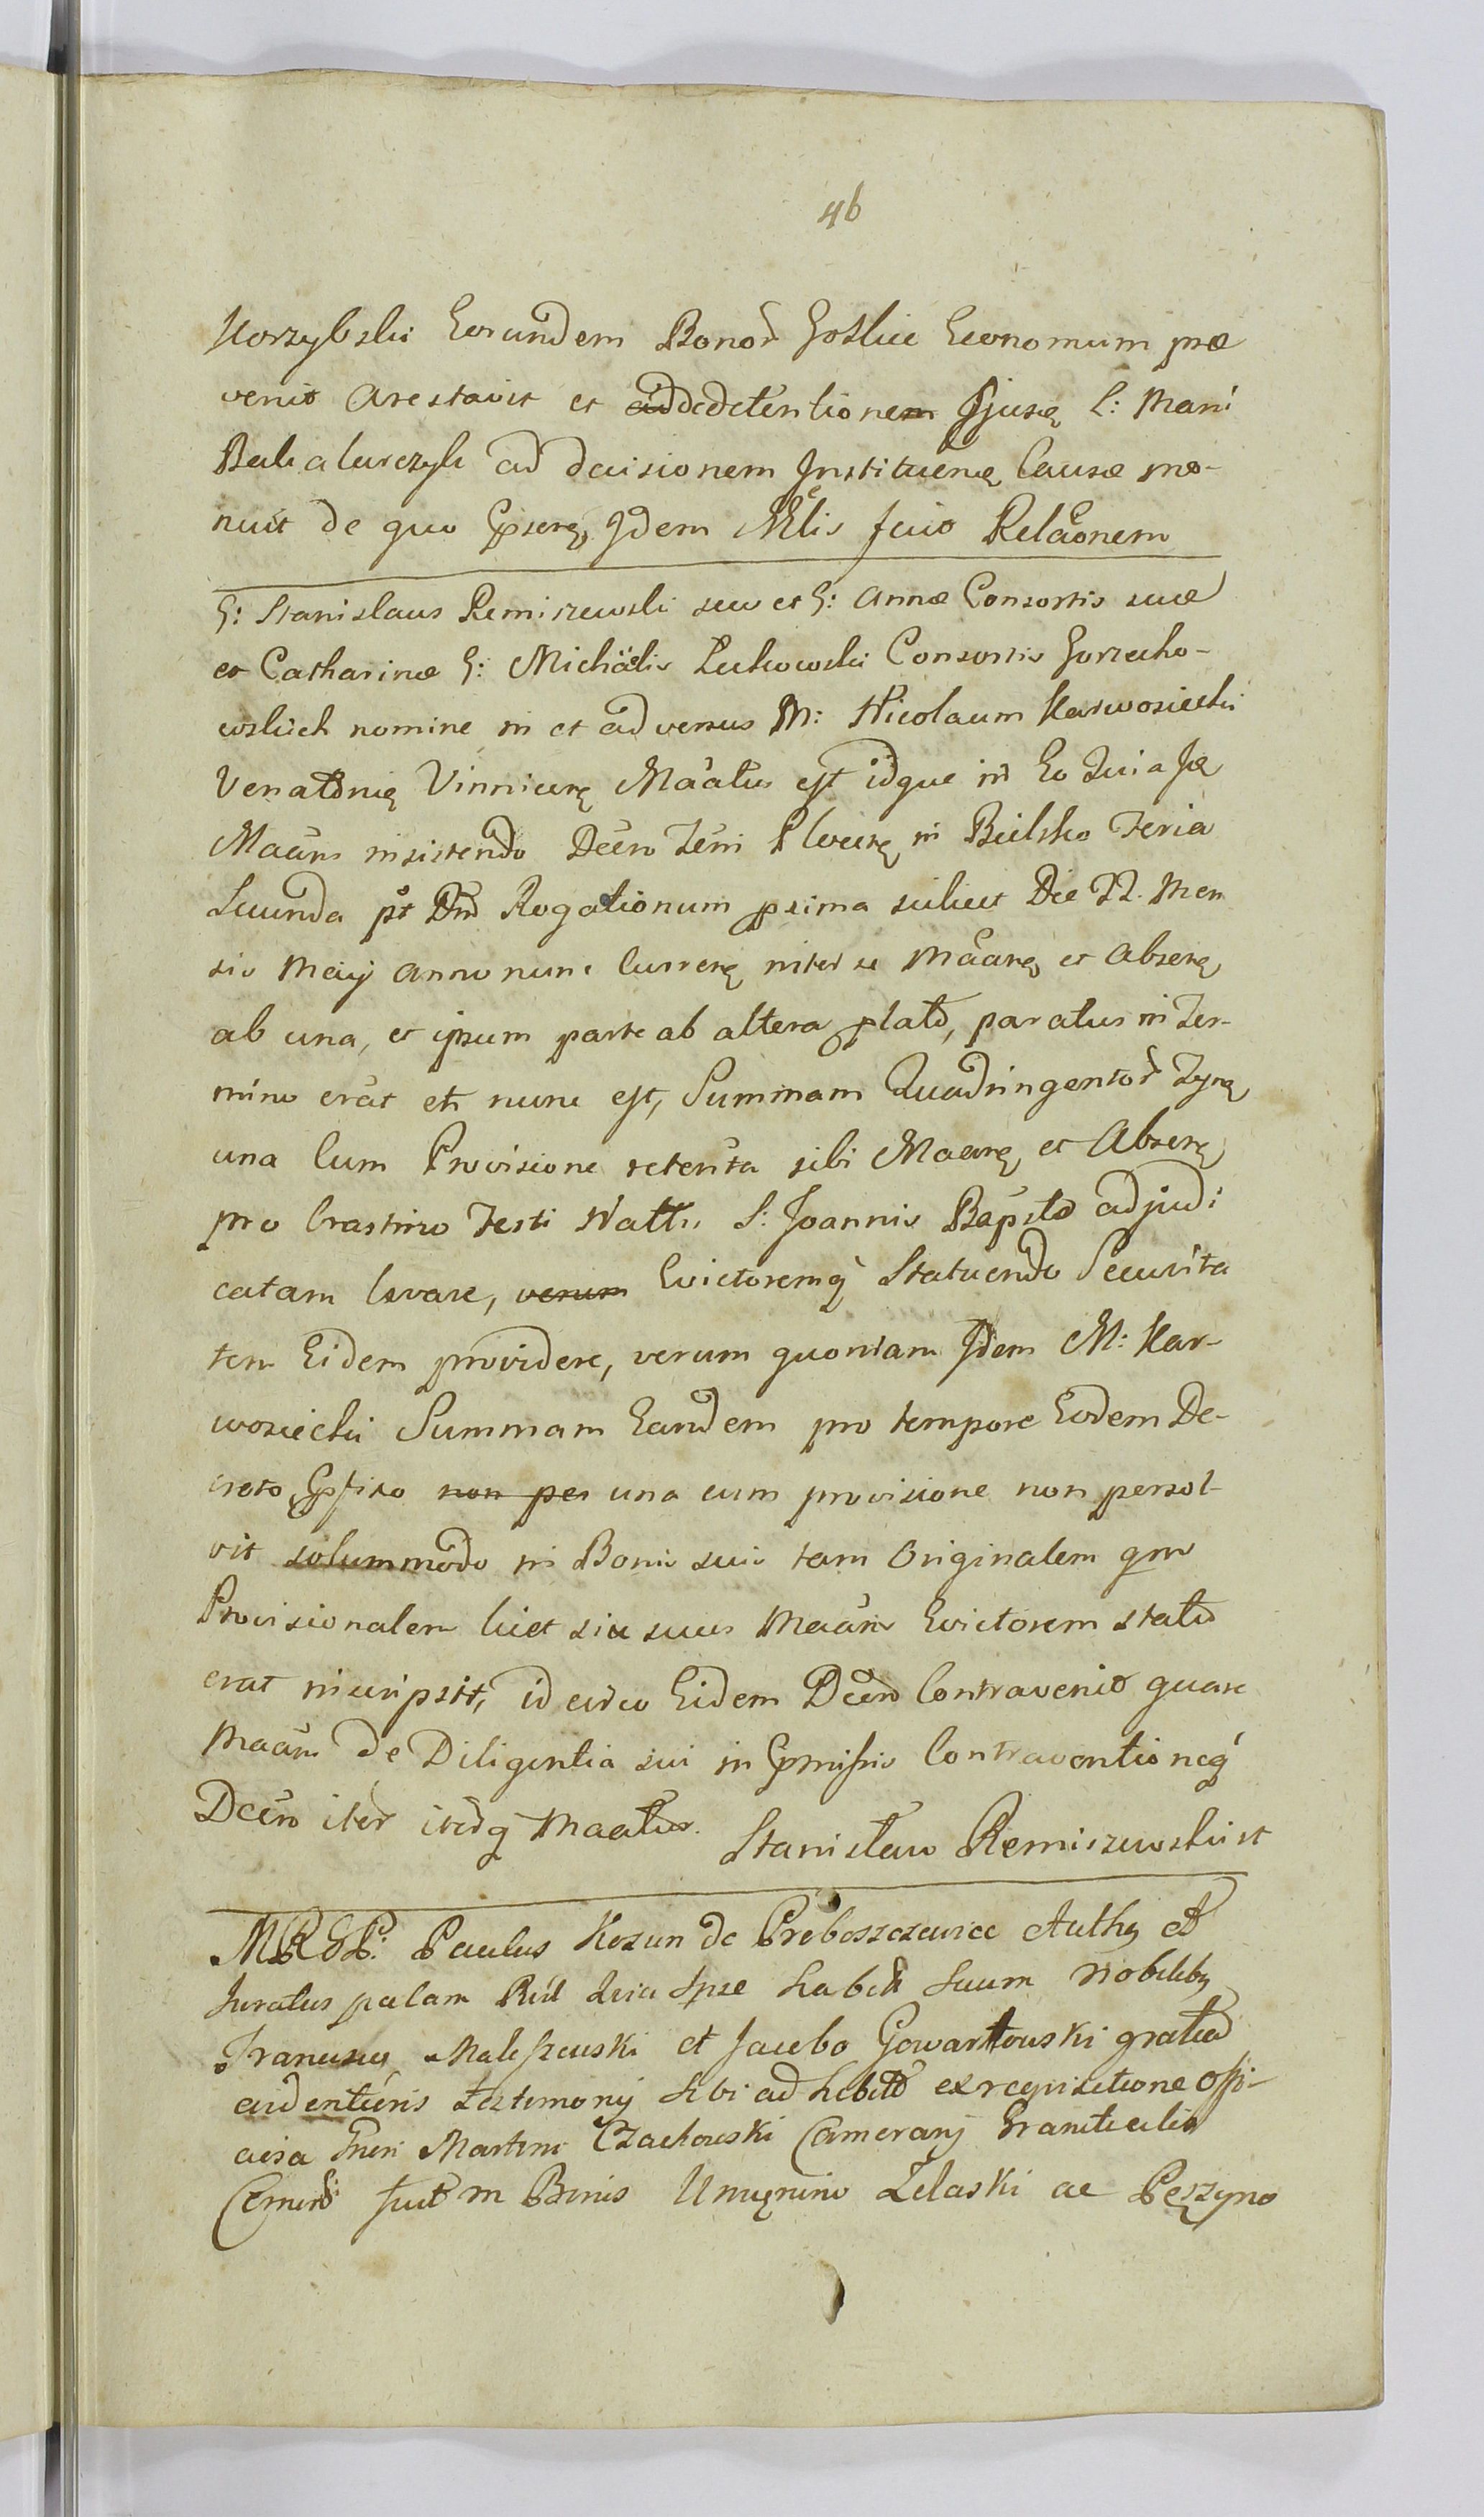 46
Korzybski Eorundem Bonor Goslice Economum præ
venit Arestavit et ad dedetentionem Ejusq L: Mani
Bakalarczyk ad decisionem Instituenę Causæ mo-
nuit de quo Idem Mlis fecit Relaonem
G: Stanislaus Remiszewski suo et G: Annæ Consortis suæ
et Catharinæ G: Michaelis Lukowski Consortis Gorzecho-
wskich nomine in et adversus M: Nicolaum Karwosiecki
Venatorię Vinnicenę Maatus est idque in Eo Quia Ipe
Maans insistendo Decro Terri Plocenę in Bielsko Feria
Secunda pt Dnd Rogationum prima scilicet Die 22. Men
sis Maij Anno nunc Currenę inter se Maanę et Absenę
ab una, et ipsum parte ab altera plato, paratus in Ter-
mino erat eti nunc est, Summam Quadringentor Tynę
una Cum Provisione retenta sibi Maanę et Absenę
pro Crastino Festi Natti S: Joannis Bapstæ adjudi
catam levare, verum Evictoremq Statuendo Securita
tem Eidem providere, verum quoniam Idem M: Kar-
wosiecki Summam Eandem pro tempore Eodem De-
creto non per una cum provisione non persol-
vit solummodo in Bonis suis tam Originalem qm
Provisionalem licet sic suus Maans Evictorem stato
erat inscripsit, id circo Eidem Decro Contravenit quare
Maans de Diligentia sui in Pmissis Contraventioneq
Decro iter iterq Maatur. Stanisław Remiszewski st
MRGP: Paulus Kozun de Proboszczewice Authę et
Juratus palam Rłit Quia Ipse habita secum Nobilibę
Francisco Maleszewski et Jacobo Gowartowski gratia
evidentioris testimonij sibi ad hibito ex requisitione offi-
ciosa Gnesi Martini Czachowski Camerarij Graniticialis
fuit in Bonis Umięnino Zelaski ac Pęszyno